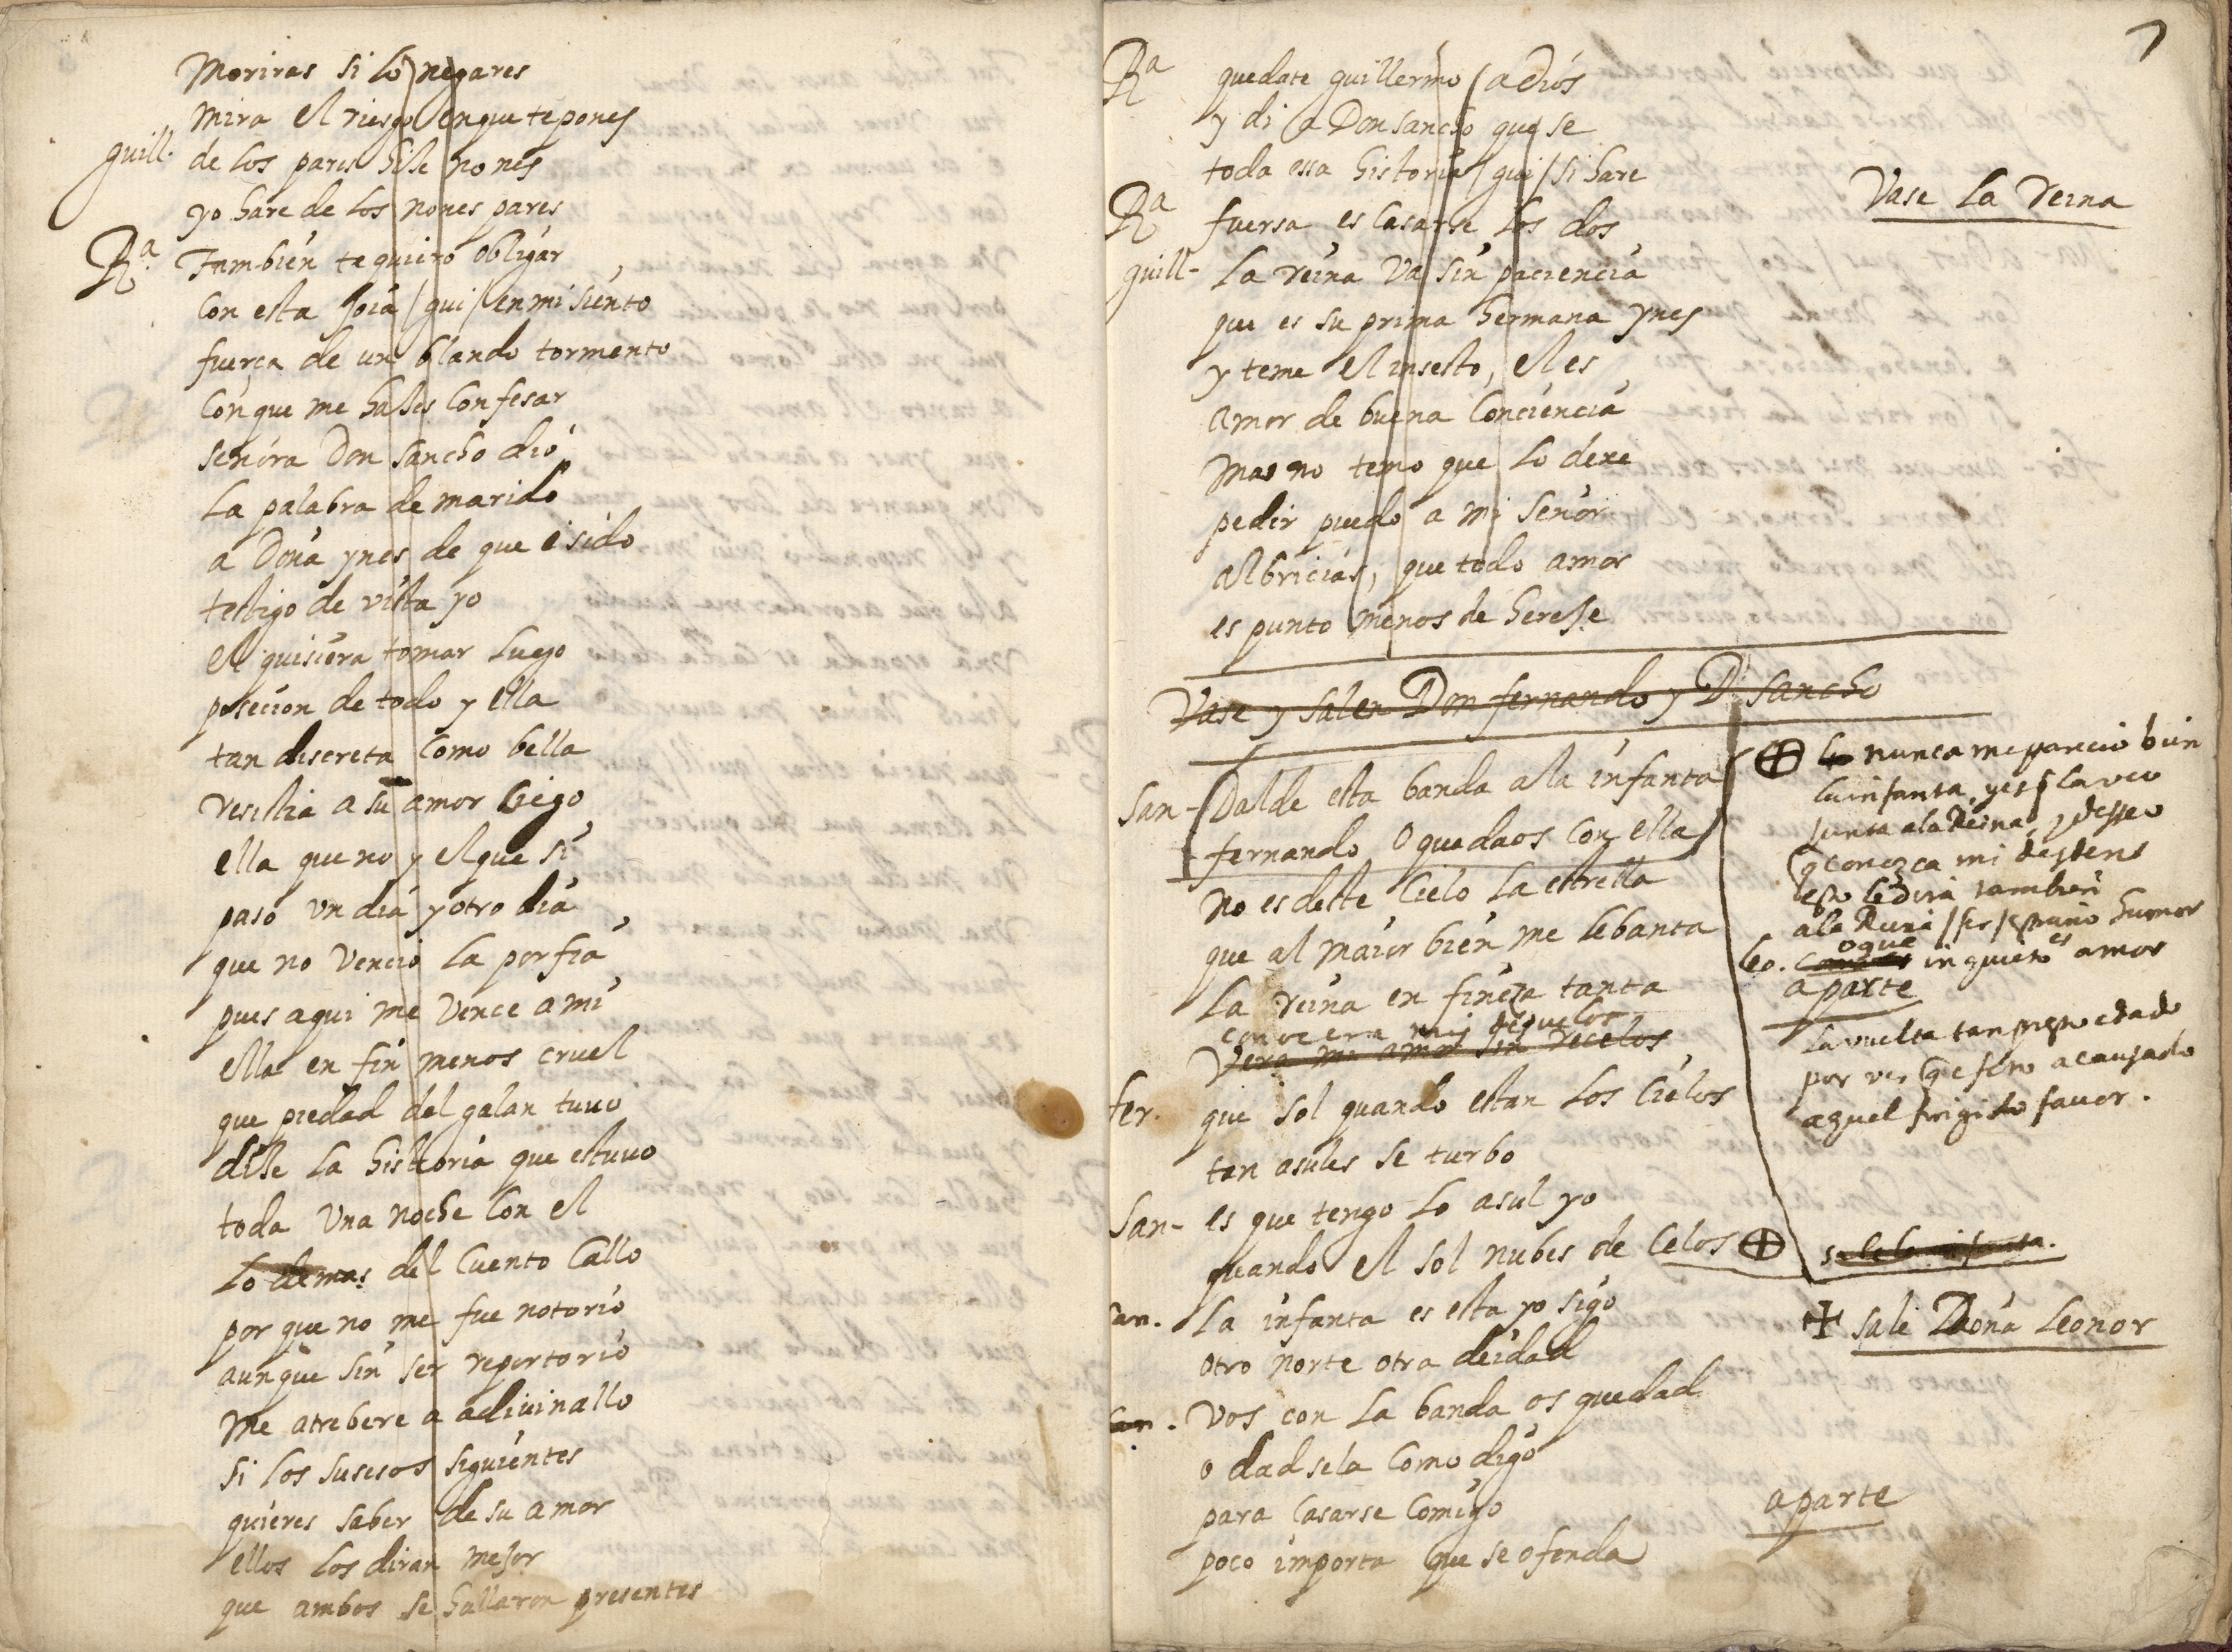 Moriras si lo negares
mira el riesgo enque te pones
guill. de los pares hise nones
yo hare de los nones pares
Ra. Tambien te quiero obligar
con esta Joia / gui / en mi siento
fuerça de un blando tormento
con que me hases confesar
señora Don sancho dio
la palabra de marido
a Doña ynes de que e sido
testigo de vista yo
el quisiera tomar luego
posecion de todo y ella
tan discreta como bella
resistia a su amor ciego
ella que no y el que si
paso un dia y otro dia
que no vencio la porfia
pues aqui me vence a mi
ella en fin menos cruel
que piedad del galan tuuo
dise la historia que estuuo
toda una noche con el
lo demas del cuento callo
por que no me fue notorio
aunque sin ser repertorio
me atrebere a adiuinallo
si los susesos siguientes
quieres saber de su amor
ellos los diran mejor
que ambos se hallaron presentes
7
Ra quedate guillermo / adios
y di a Don sancho que se
toda essa historia / gui / si hare
Vase la reina
Ra fuersa es casarse los dos
guill- la reina va sin paciencia
que es su prima hermana ynes
y teme el insesto, el es
amor de buena conciencia
mas no temo que lo dexe
pedir puedo a mi señor
albricias, que todo amor
es punto menos de hereje
Vase y salen Don fernando y D. sancho
san- Dalde esta banda a la infanta
fernando o quedaos con ella
no es deste cielo la estrella
que al maior bien me lebanta
la reina en fineza tanta
conocera mis desuelos
Vera mi amor sin recelos
fer. que sol quando estan los cielos
tan asules se turbo
san- es que tengo lo asul yo
quando el sol nubes de celos
san. la infanta es esta yo sigo
otro norte otra deidad
san. vos con la banda os quedad
o dad sela como digo
para casarse comigo
poco importa que se ofenda
nunca me parecio bien
la infanta, y es si la veo
junta a la Reina, y desseo
q conozca mi desden
esto le dira tambien
a la Reina / fer / estraño humor
leo. o que inquieto es amor
aparte
la vuelta tan presto e dado
por ver q efeto a causado
aquel fingido fauor.
sale la infanta.
sale Doña Leonor
aparte